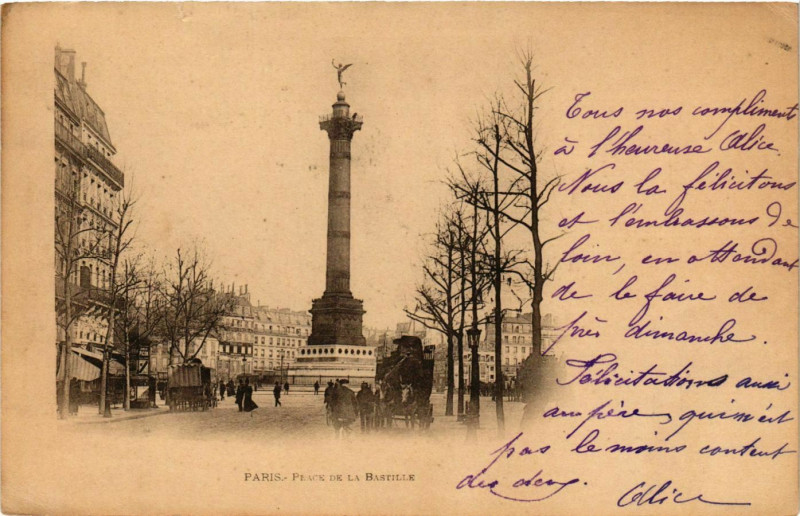 Tous nos compliments
à l'heureuse Alice.
Nous la félicitons
et l'embrassons de
loin, en attendant
de le faire de
près dimanche.
Félicitations aussi
au père, qui n'est
pas le moins content
des deux.
Alice
PARIS.- PLACE DE LA BASTILLE